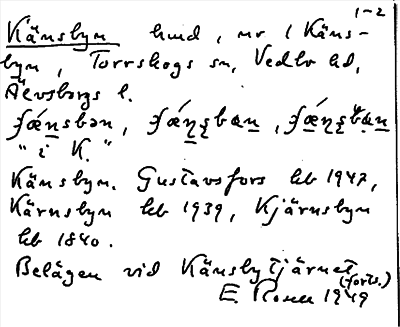 1-2
Känsbyn hmd, nr 1 Käns-
byn, Torrskogs sn, Vedbo hd,
Älvsborgs l.
fǽnsbən, fǽn̨ʂban, fǽn̨ʂban
"i K."
Känsbyn. Gustavsfors kb 1947,
Kärnsbyn kb 1939, Kjärnsbyn
kb 1840.
Belägen vid Känsbytjärnet
(forts.)
E. Rosell 1949